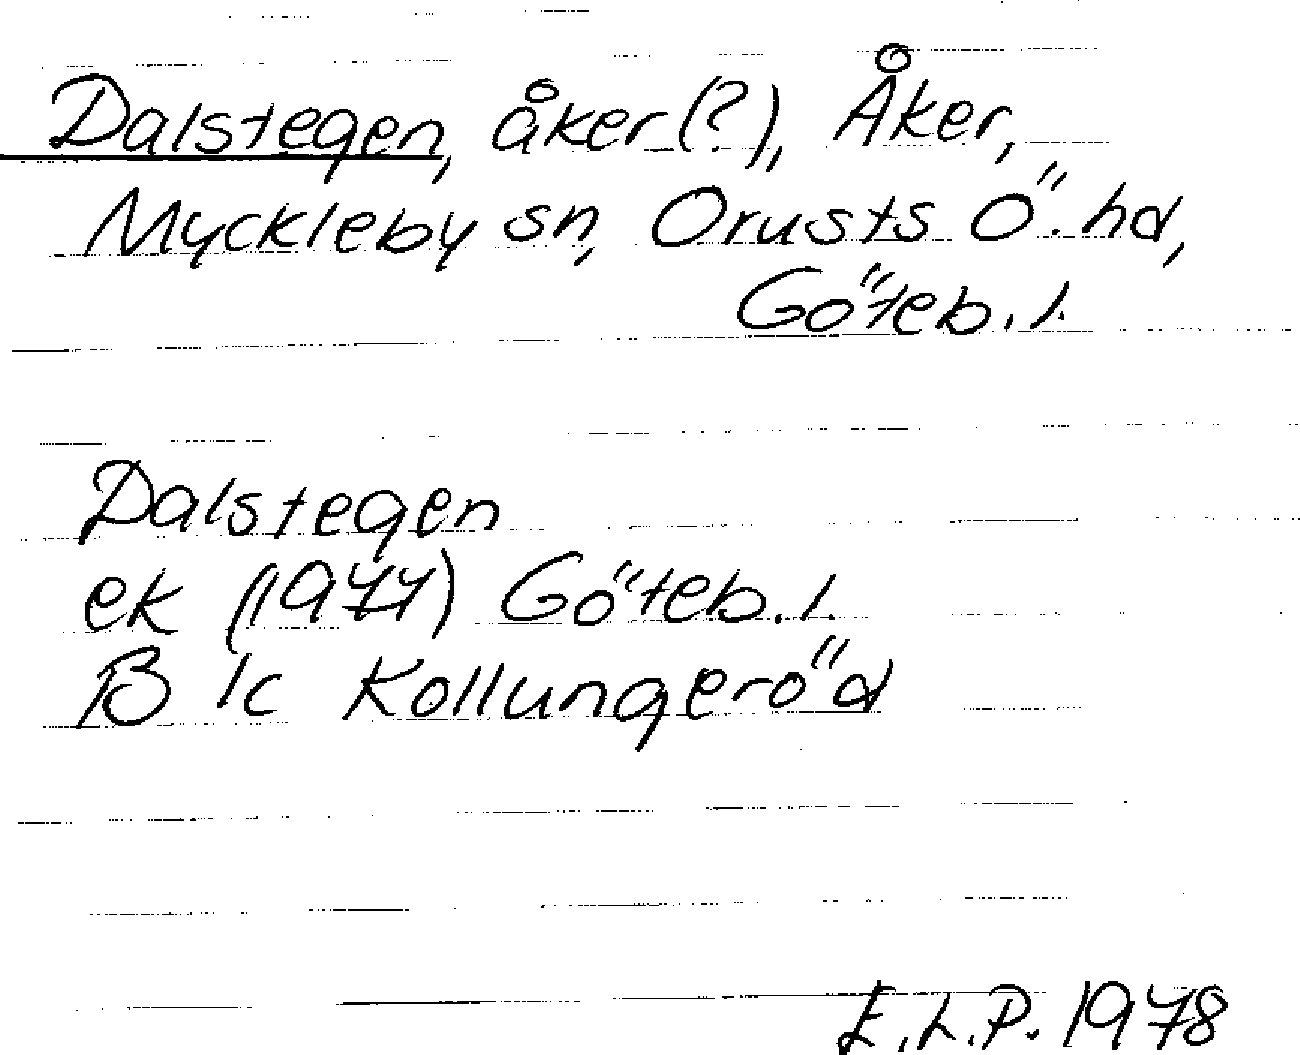 Dalstegen, åker (?), Åker,
Myckleby sn, Orusts Ö. hd,
Göteb. l.
Dalstegen
ek (1977) Göteb. l.
B 1c Kollungeröd
E.L.P. 1978